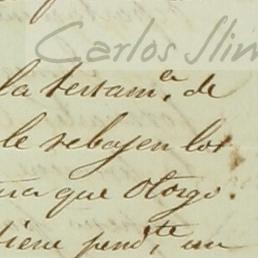 Carlos Slim
la testam.ª de
le rebajen los
que otorgó.
tiene pend.te un